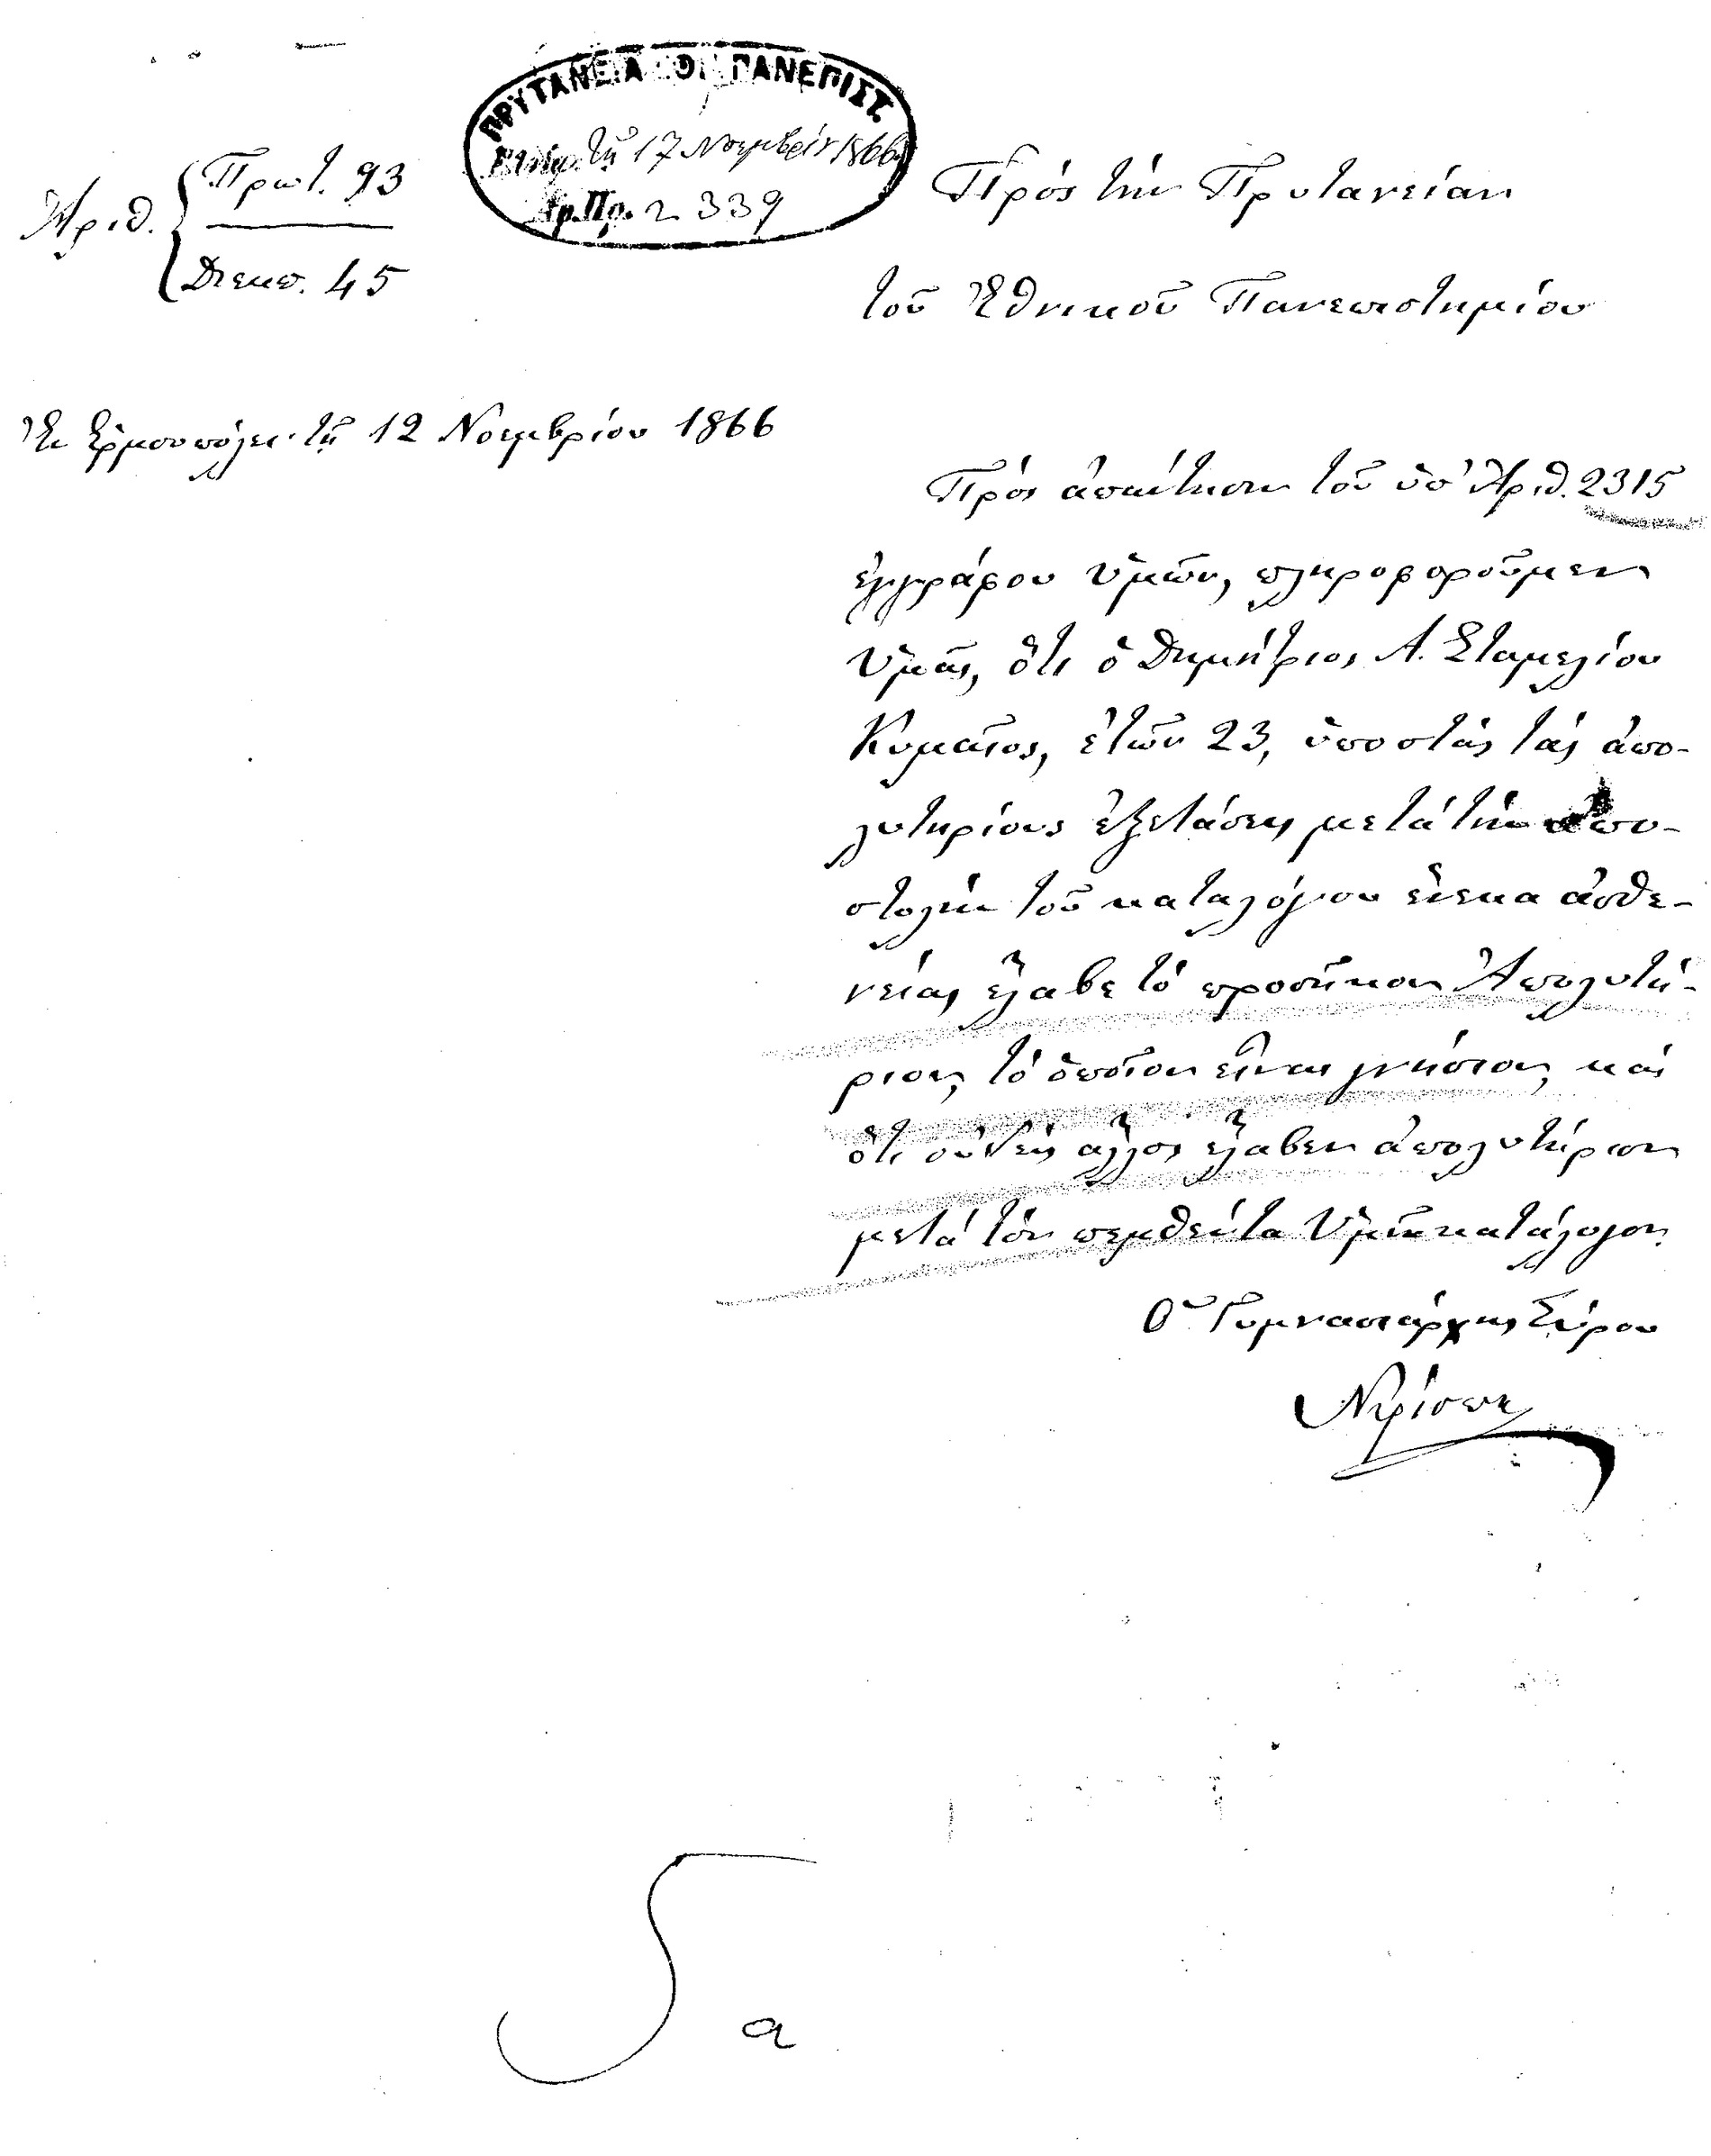 ΠΡΥΤΑΝΕΙΑ ΕΘ. ΠΑΝΕΠΙΣΤ.
τῇ 17 Νοεμβρίου 1866
Ἀρ. Πρ. 2339
Ἀριθ. Πρωτ. 93
Διεκπ. 45
Πρός τήν Πρυτανείαν
τοῦ Ἐθνικοῦ Πανεπιστημίου
Ἐν Ἑρμουπόλει τῇ 12 Νοεμβρίου 1866
Πρός ἀπαίτησιν τοῦ ὑπ' Ἀριθ. 2315
ἐγγράφου Ὑμῶν, πληροφοροῦμεν
Ὑμᾶς, ὅτι ὁ Δημήτριος Α. Σταμελίου
Κυμαῖος, ἐτῶν 23, ὑποστάς τάς ἀπο-
λυτηρίους ἐξετάσεις μετά τήν ἀπο-
στολήν τοῦ καταλόγου ἕνεκα ἀσθε-
νείας ἔλαβε τό προσῆκον Ἀπολυτή-
ριον, τό ὁποῖον εἶναι γνήσιον, καί
ὅτι οὐδείς ἄλλος ἔλαβεν ἀπολυτήριον
μετά τόν πεμφθέντα Ὑμῖν κατάλογον.
Ὁ Γυμνασιάρχης Σύρου
5
α